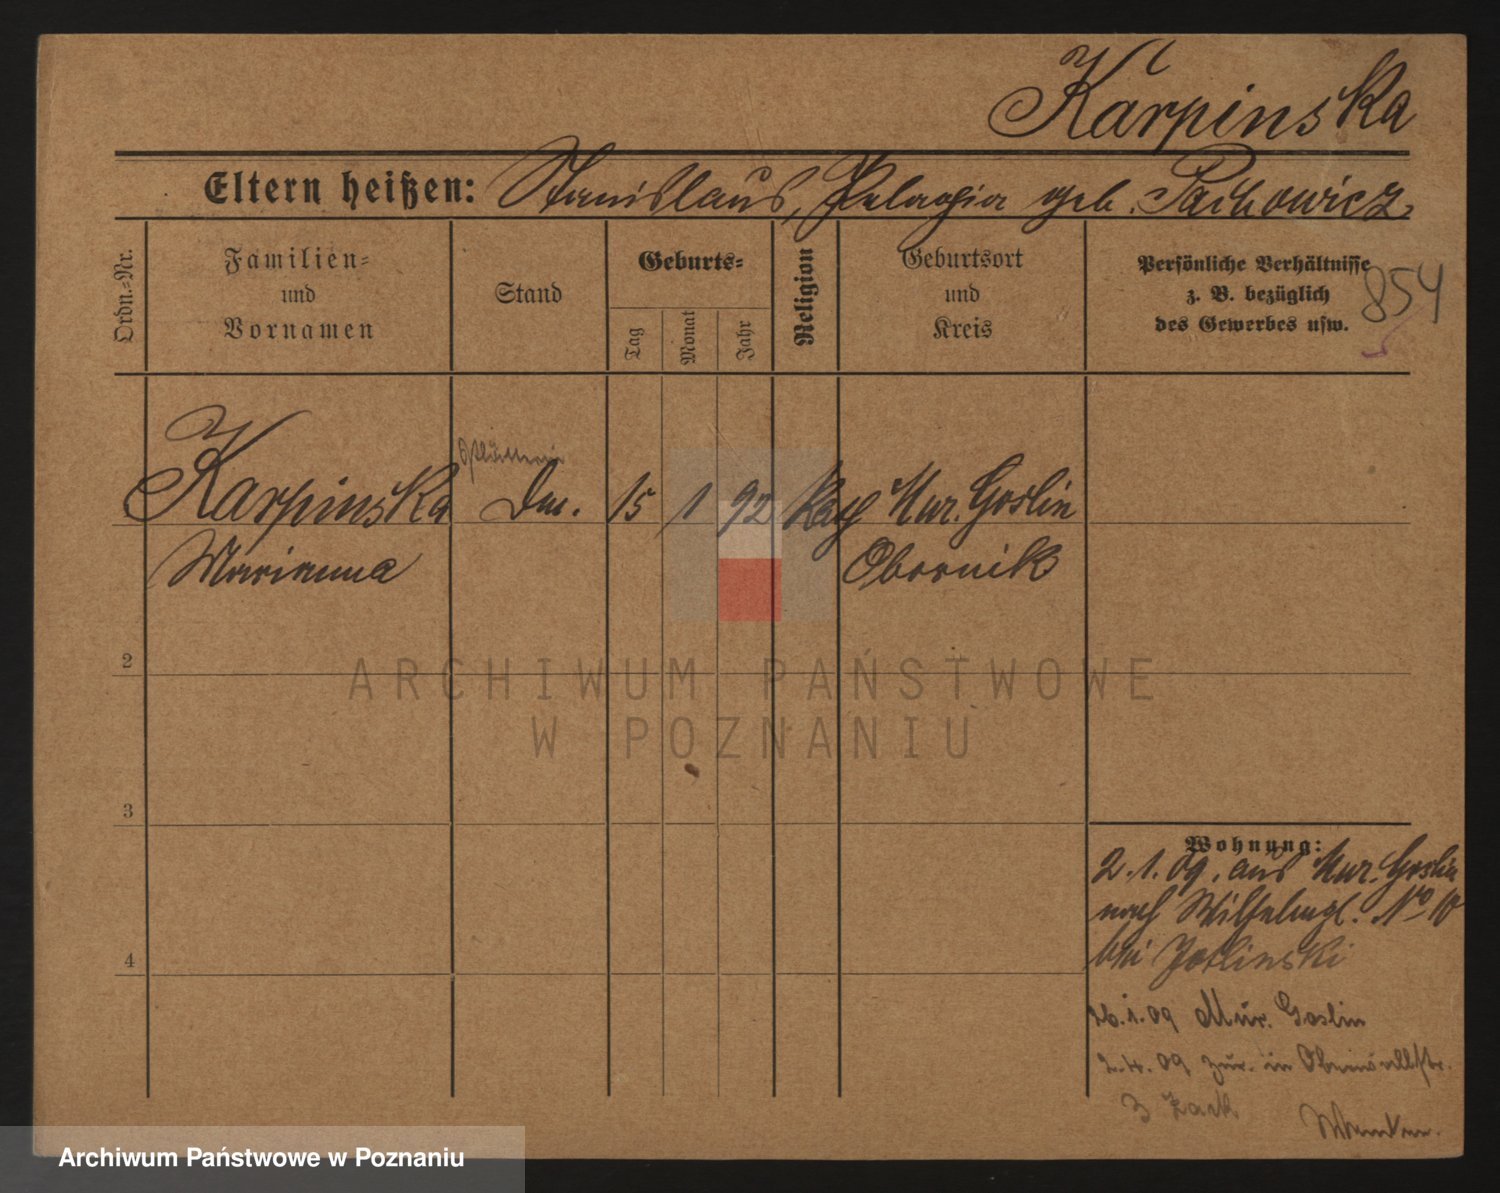 Karpinska
Eltern heißen: Stanislaus, Pelagia geb.
Ordn.-Nr.
Familien-
und
Vornamen
Stand
Geburts-
Tag
Monat
Jahr
Religion
Geburtsort
und
Kreis
Persönliche Verhältnisse
z. B. bezüglich
des Gewerbes usw.
854
Karpinska
15 1 92 Kath Mur. Goslin
Marianna
Obornik
2
3
4
Wohnung:
2.1.09. aus Mur. Goslin
nach Wilhelmspl. No 10
bei
26.1.09 Mur. Goslin
2.4.09 zur. in
3
ARCHIWUM PAŃSTWOWE
W POZNANIU
Archiwum Państwowe w Poznaniu